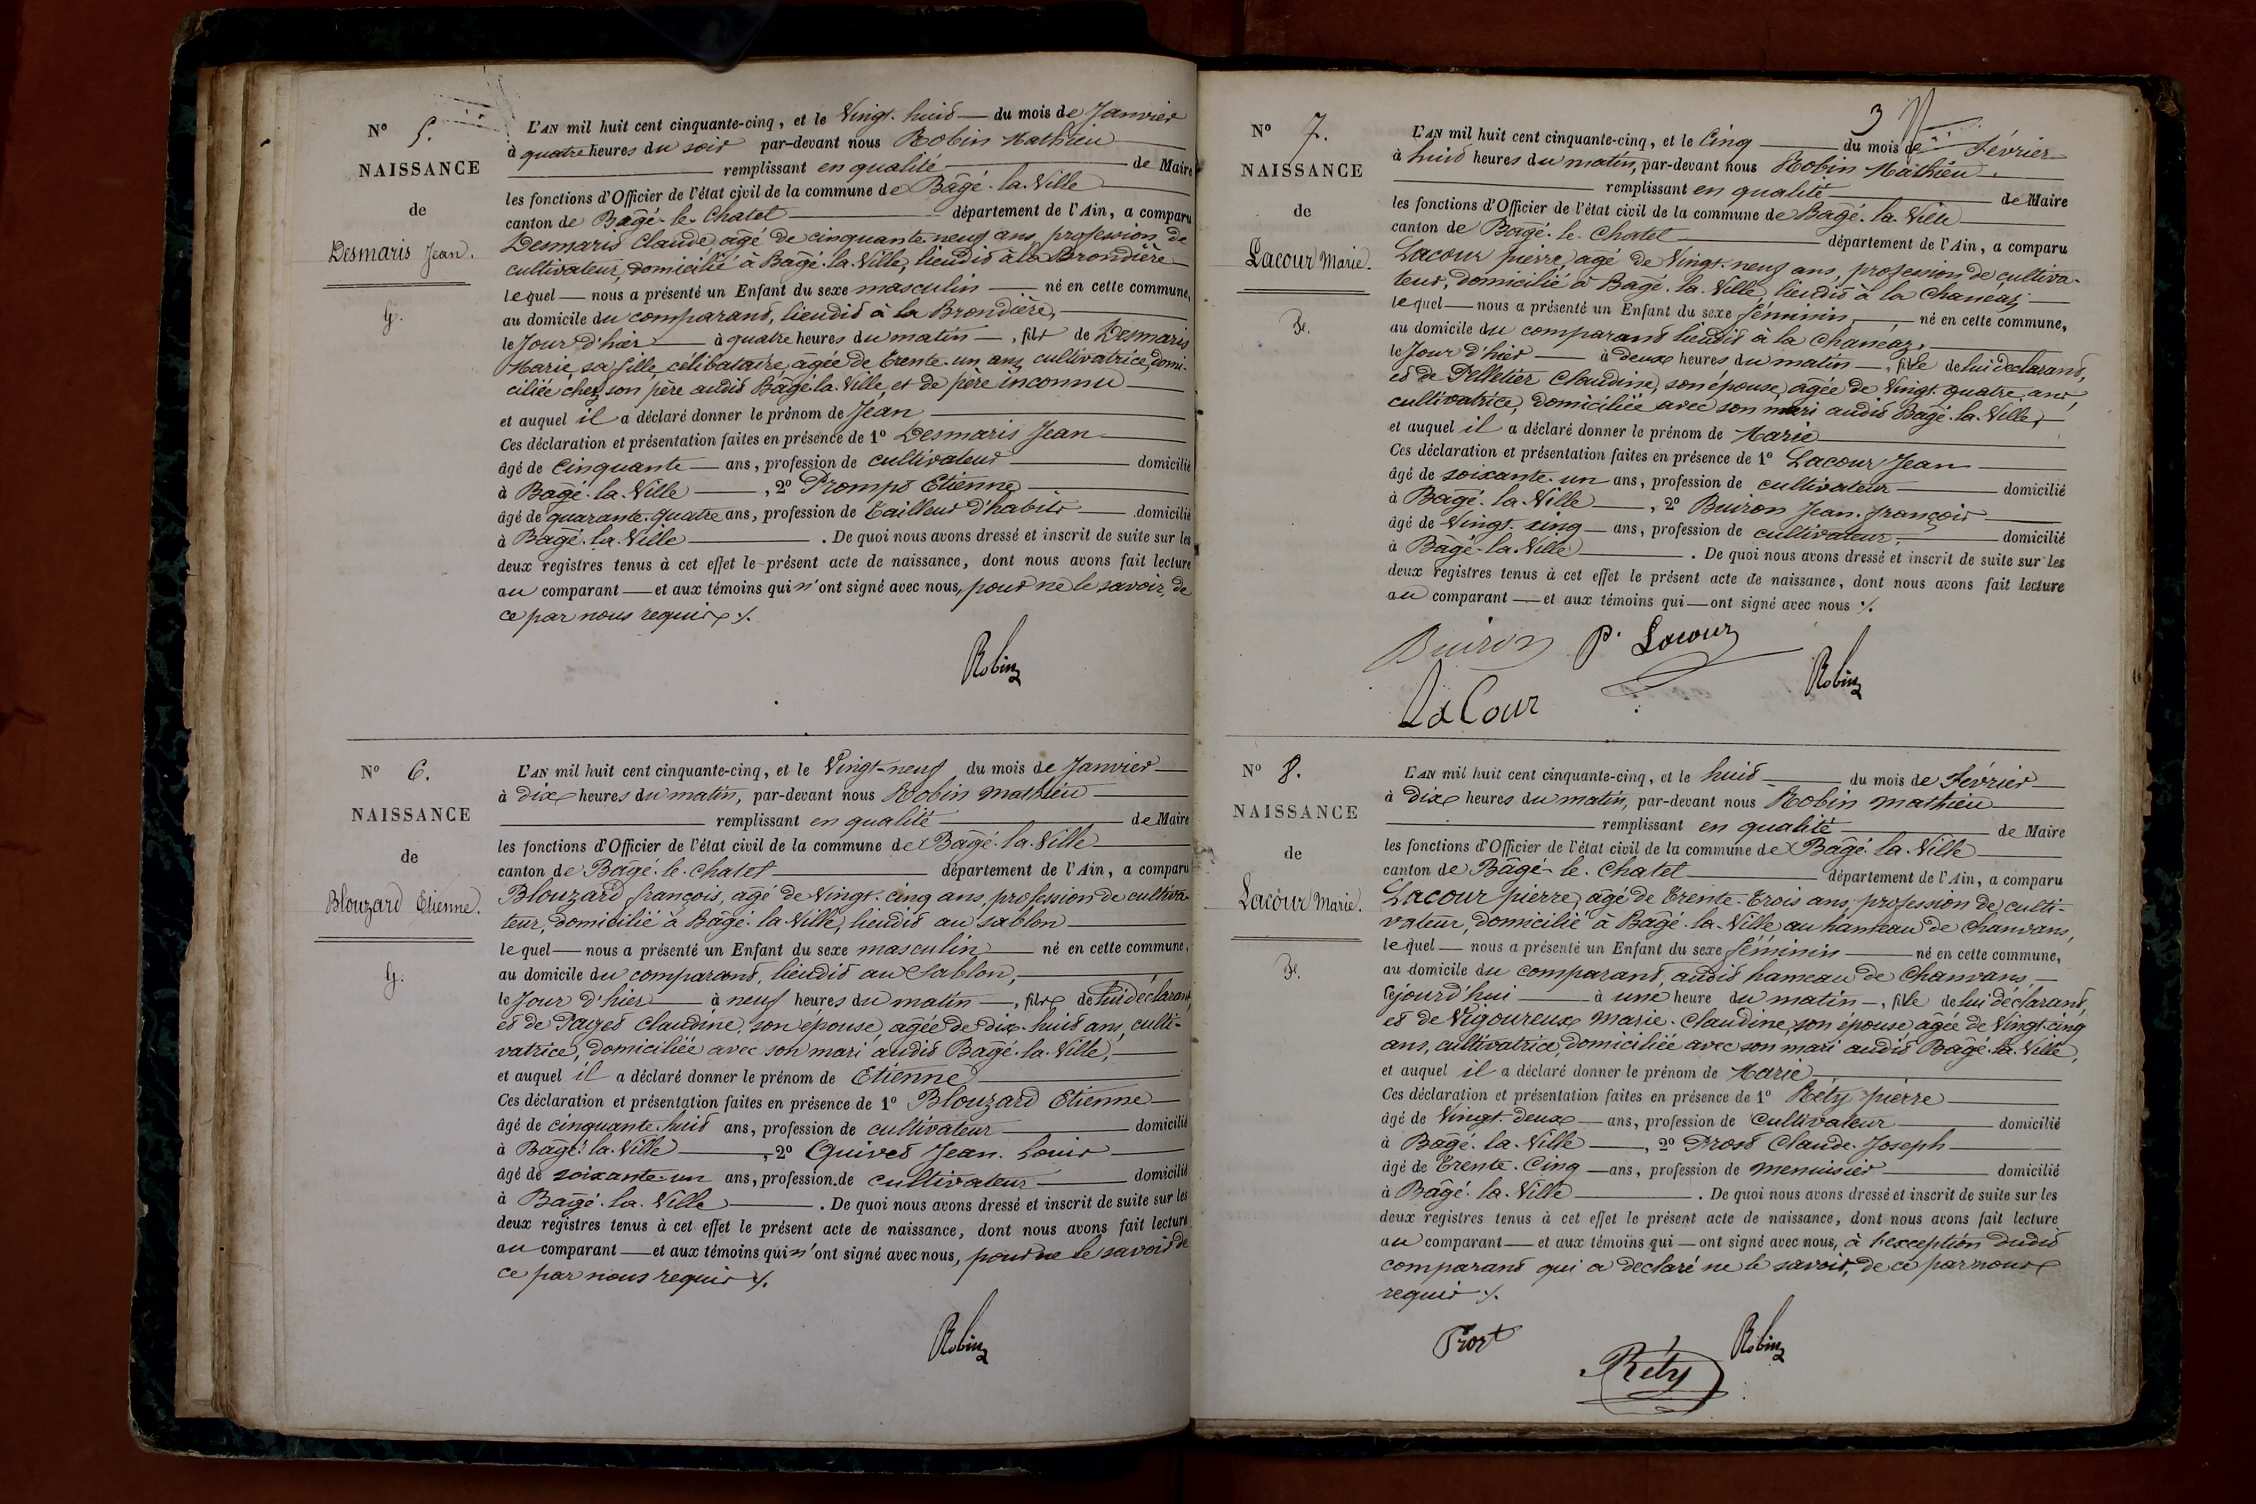 N° 5.
NAISSANCE
de
Desmaris Jean.
G.
L'AN mil huit cent cinquante-cinq, et le Vingt-huit du mois de Janvier
à quatre heures du soir par-devant nous Robin Mathieu
remplissant en qualité de Maire
les fonctions d'Officier de l'état civil de la commune de Bâgé-la-Ville
canton de Bâgé-le-Chatel département de l'Ain, a comparu
Desmaris Claude, agé de cinquante neuf ans, profession de
cultivateur, domicilié à Bâgé-la-Ville, lieudit à la Brondière
lequel nous a présenté un Enfant du sexe masculin né en cette commune,
au domicile du comparant, lieudit à la Brondière,
le Jour d'hier à quatre heures du matin, fils de Desmaris
Marie, sa fille célibataire, agée de trente-un ans, cultivatrice, domi-
ciliée chez son père audit Bâgé-la-Ville, et de père inconnu
et auquel il a déclaré donner le prénom de Jean
Ces déclaration et présentation faites en présence de 1° Desmaris Jean
âgé de Cinquante ans, profession de cultivateur domicilié
à Bâgé-la-Ville, 2° Promps Etienne
âgé de quarante-quatre ans, profession de tailleur d'habits domicilié
à Bâgé-la-Ville. De quoi nous avons dressé et inscrit de suite sur les
deux registres tenus à cet effet le présent acte de naissance, dont nous avons fait lecture
au comparant et aux témoins qui n'ont signé avec nous, pour ne le savoir, de
ce par nous requis ./.
Robin
N° 6.
NAISSANCE
de
Blouzard Etienne.
G.
L'AN mil huit cent cinquante-cinq, et le Vingt-neuf du mois de Janvier
à dix heures du matin, par-devant nous Robin Mathieu
remplissant en qualité de Maire
les fonctions d'Officier de l'état civil de la commune de Bâgé-la-Ville
canton de Bâgé-le-Chatel département de l'Ain, a comparu
Blouzard françois, agé de Vingt-cinq ans, profession de cultiva-
teur, domicilié à Bâgé-la-Ville, lieudit au Sablon
lequel nous a présenté un Enfant du sexe masculin né en cette commune,
au domicile du comparant, lieudit au Sablon,
le Jour d'hier à neuf heures du matin, fils de lui déclarant,
et de Paget Claudine, son épouse, agée de dix-huit ans, culti-
vatrice, domiciliée avec son mari audit Bâgé-la-Ville,
et auquel il a déclaré donner le prénom de Etienne
Ces déclaration et présentation faites en présence de 1° Blouzard Etienne
âgé de cinquante-huit ans, profession de cultivateur domicilié
à Bâgé-la-Ville, 2° Quivet Jean-Louis
âgé de soixante-un ans, profession de cultivateur domicilié
à Bâgé-la-Ville. De quoi nous avons dressé et inscrit de suite sur les
deux registres tenus à cet effet le présent acte de naissance, dont nous avons fait lecture
au comparant et aux témoins qui n'ont signé avec nous, pour ne le savoir de
ce par nous requis ./.
Robin
3
N° 7.
NAISSANCE
de
Lacour Marie.
F.
L'AN mil huit cent cinquante-cinq, et le Cinq du mois de Février
à huit heures du matin, par-devant nous Robin Mathieu
remplissant en qualité de Maire
les fonctions d'Officier de l'état civil de la commune de Bâgé-la-Ville
canton de Bâgé-le-Chatel département de l'Ain, a comparu
Lacour pierre, agé de Vingt-neuf ans, profession de cultiva-
teur, domicilié à Bâgé-la-Ville, lieudit à la Chanéaz,
lequel nous a présenté un Enfant du sexe féminin, né en cette commune,
au domicile du comparant lieudit à la Chanéaz,
le Jour d'hier à deux heures du matin, fille de lui déclarant,
et de Pelletier Claudine, son épouse, agée de Vingt-quatre ans,
cultivatrice, domiciliée avec son mari audit Bâgé-la-Ville,
et auquel il a déclaré donner le prénom de Marie
Ces déclaration et présentation faites en présence de 1° Lacour Jean
âgé de soixante-un ans, profession de cultivateur domicilié
à Bâgé-la-Ville, 2° Buiron Jean-françois
âgé de Vingt-cinq ans, profession de cultivateur, domicilié
à Bâgé-la-Ville. De quoi nous avons dressé et inscrit de suite sur les
deux registres tenus à cet effet le présent acte de naissance, dont nous avons fait lecture
au comparant et aux témoins qui ont signé avec nous ./.
Buiron P. Lacour
Robin
La Cour
N° 8.
NAISSANCE
de
Lacour Marie.
F.
L'AN mil huit cent cinquante-cinq, et le huit du mois de Février
à dix heures du matin, par-devant nous Robin Mathieu
remplissant en qualité de Maire
les fonctions d'Officier de l'état civil de la commune de Bâgé-la-Ville
canton de Bâgé-le-Chatel département de l'Ain, a comparu
Lacour pierre, agé de trente-trois ans, profession de culti-
vateur, domicilié à Bâgé-la-Ville au hameau de Chanvans,
lequel nous a présenté un Enfant du sexe féminin né en cette commune,
au domicile du comparant, audit hameau de Chanvans,
ce jourd'hui à une heure du matin, fille de lui déclarant,
et de Vigoureux Marie-Claudine, son épouse, âgée de Vingt-cinq
ans, cultivatrice, domiciliée avec son mari audit Bâgé-la-Ville,
et auquel il a déclaré donner le prénom de Marie
Ces déclaration et présentation faites en présence de 1° Réty pierre
âgé de Vingt-deux ans, profession de Cultivateur domicilié
à Bâgé-la-Ville, 2° Prost Claude-Joseph
âgé de trente-cinq ans, profession de menuisier domicilié
à Bâgé-la-Ville. De quoi nous avons dressé et inscrit de suite sur les
deux registres tenus à cet effet le présent acte de naissance, dont nous avons fait lecture
au comparant et aux témoins qui ont signé avec nous, à l'exception dudit
comparant qui a déclaré ne le savoir, de ce par nous
requis ./.
Prost
Robin
Réty